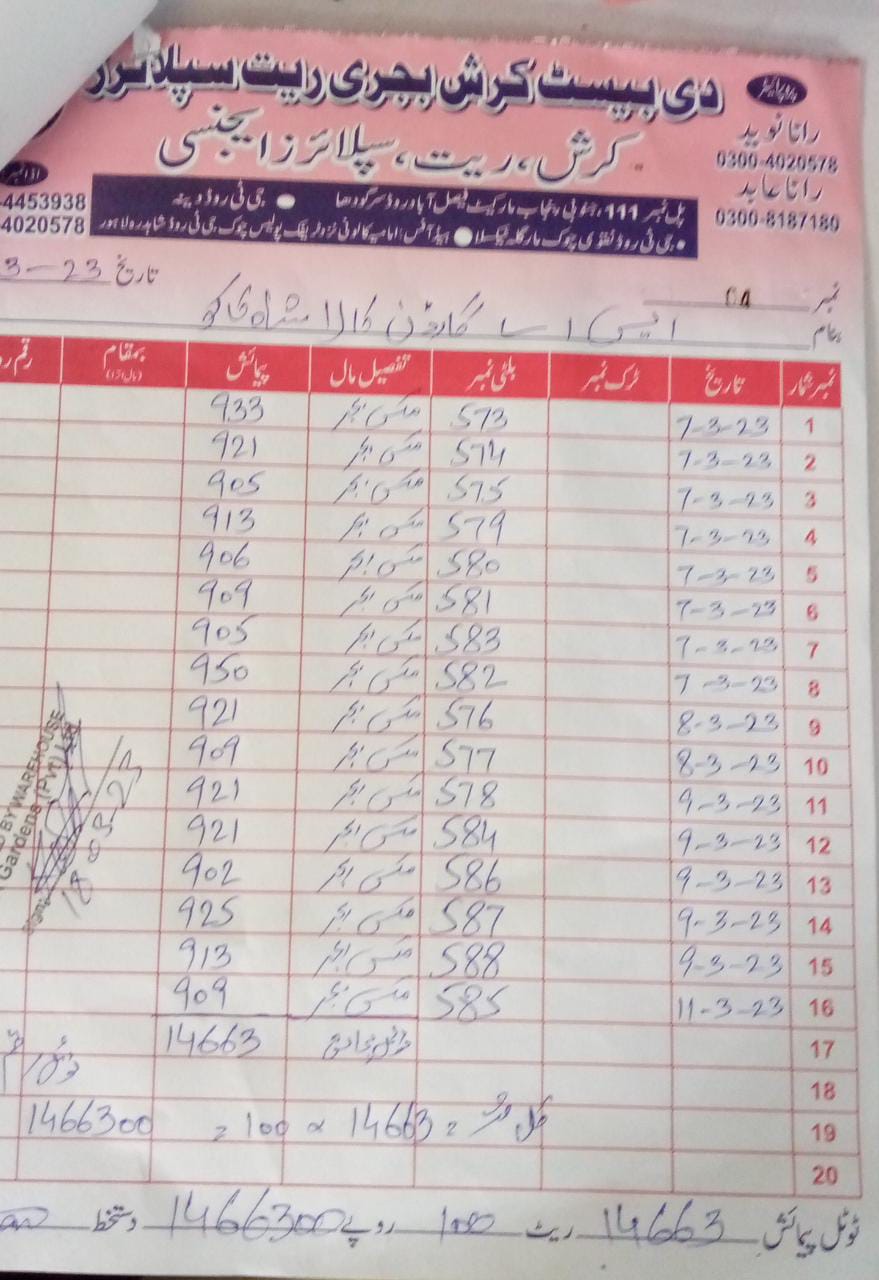 دی بیسٹ کرش بجری ریت سپلائرز
پروپرائیٹر
کرش، ریت، سپلائرز ایجنسی
رانا نوید
0300-4020578
رانا عابد
0300-8187180
4453938
4020578
پل نمبر 111، جنوبی پنجاب مارکیٹ فیصل آباد روڈ سرگودھا ● جی ٹی روڈ دینہ
● جی ٹی روڈ چوک مارگلہ ٹیکسلا ● ہیڈ آفس: امامیہ کالونی نزد ٹریفک پولیس چوک جی ٹی روڈ شاہدرہ لاہور
نمبر 04 تاریخ 3-23
بنام ایس اے گارڈن کالا شاہ کاکو
نمبر شمار تاریخ ٹرک نمبر بلٹی نمبر تفصیل مال پیمائش بمقام رقم
1 7-3-23 573 مکس بجر 933
2 7-3-23 574 مکس بجر 921
3 7-3-23 575 مکس بجر 905
4 7-3-23 579 مکس بجر 913
5 7-3-23 580 مکس بجر 906
6 7-3-23 581 مکس بجر 909
7 7-3-23 583 مکس بجر 905
8 7-3-23 582 مکس بجر 950
9 8-3-23 576 مکس بجر 921
10 8-3-23 577 مکس بجر 909
11 9-3-23 578 مکس بجر 921
12 9-3-23 584 مکس بجر 921
13 9-3-23 586 مکس بجر 902
14 9-3-23 587 مکس بجر 925
15 9-3-23 588 مکس بجر 913
16 11-3-23 585 مکس بجر 909
17 14663
18
19 کل فٹ = 14663 × 100 = 1466300
20
ٹوٹل پیمائش 14663 ریٹ 100 روپے 1466300 دستخط
BY WAREHOUSE
Gardens (Pvt) Ltd
Sign:
18-03-23